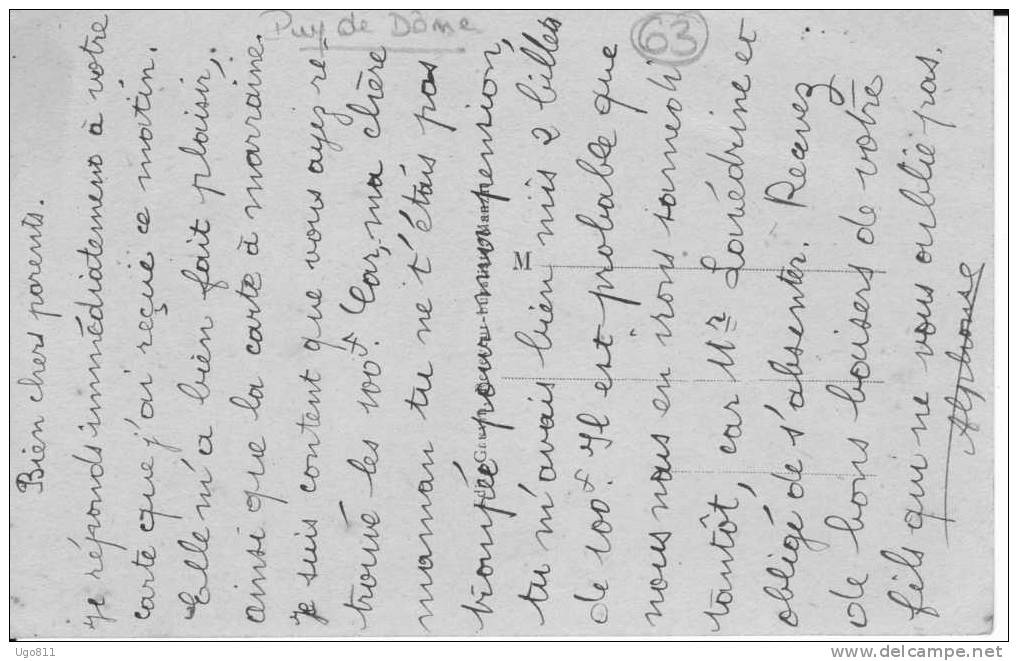 Puy de Dôme
63
Bien chers parents.
Je réponds immédiatement à votre
carte que j'ai reçue ce matin.
Elle m'a bien fait plaisir,
ainsi que la carte à marraine.
Je suis content que vous ayez re-
trouvé les 100F. Car, ma chère
maman tu ne t'étais pas
trompée pour ma pension,
tu m'avais bien mis 2 billets
de 100F. Il est probable que
nous nous en irons samedi
tantôt, car Mr Lauédrine et
obligé de s'absenter. Recevez
de bons baisers de votre
fils qui ne vous oublie pas.
Alphonse
M
Ugo811
www.delcampe.net